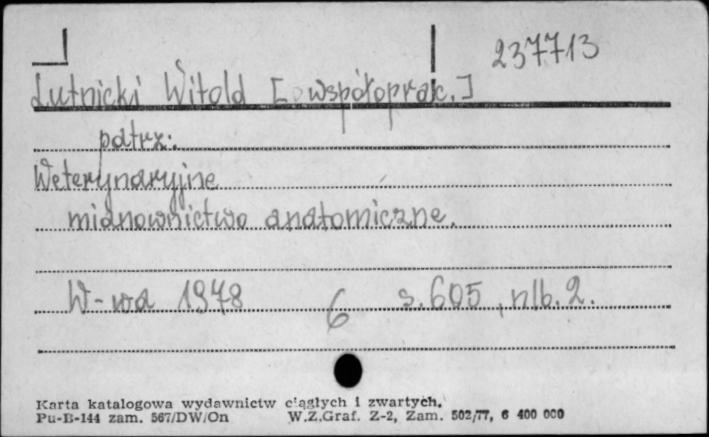 237713
Lutnicki Witold [współoprac.]
patrz:
Weterynaryjne
mianownictwo anatomiczne.
W-wa 1978 6 s. 605, nlb. 2.
Karta katalogowa wydawnictw ciągłych i zwartych.
Pu-B-144 zam. 567/DW/On W.Z.Graf. Z-2, Zam. 502/77, 6 400 000